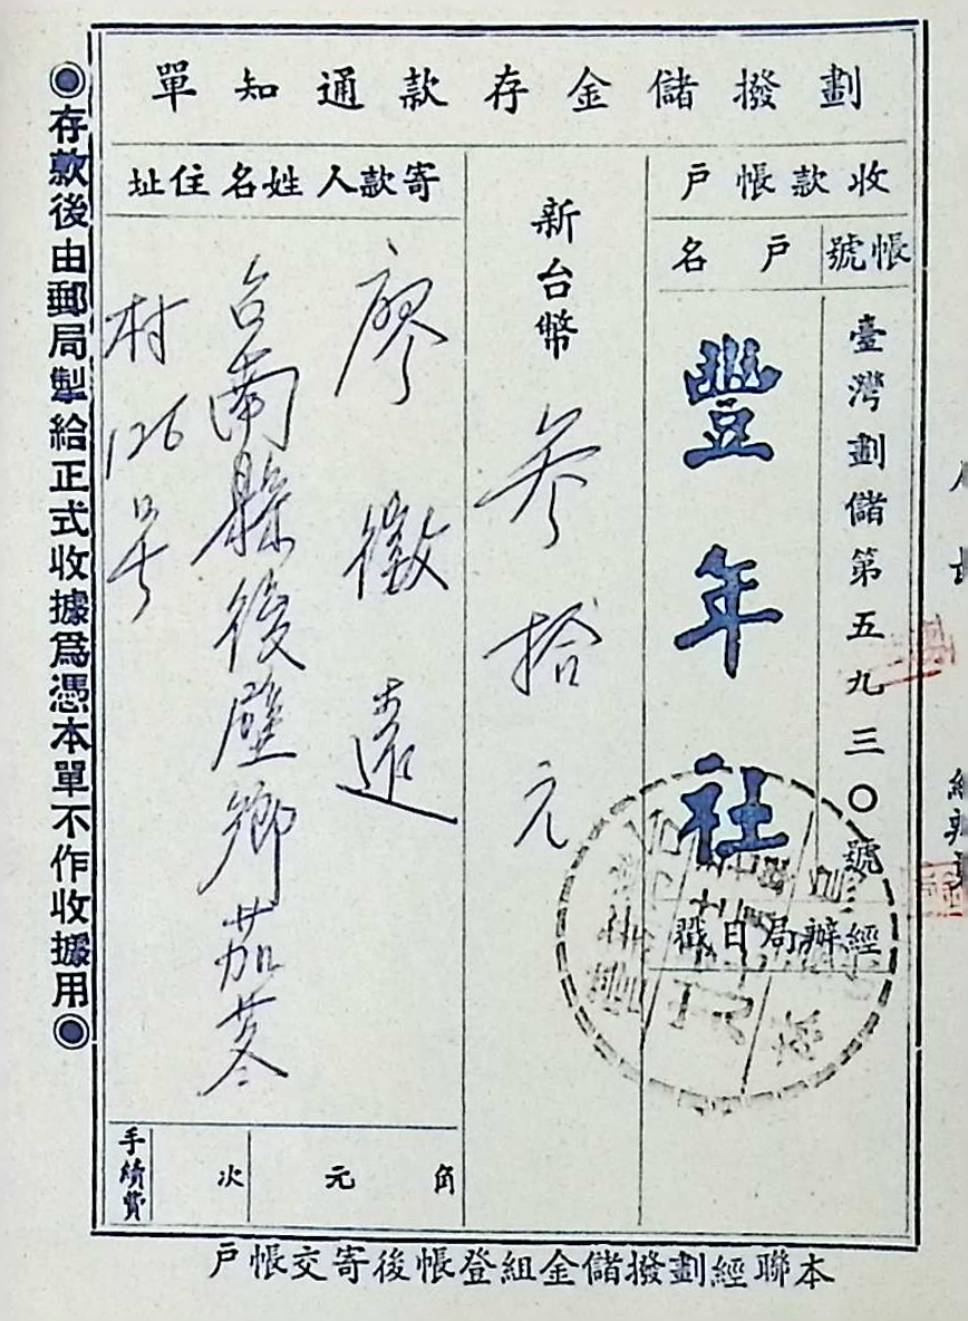 劃撥儲金存款通知單
收款帳戶
帳號
戶名
臺灣劃儲第五九三〇號
豐年社
經辦局日戳
新台幣
叁拾元
寄款人姓名住址
廖徵遠
台南縣後壁鄉茄苳
村126号
手續費
次
元
角
◉存款後由郵局掣給正式收據爲憑本單不作收據用◉
本聯經劃撥儲金組登帳後寄交帳戶